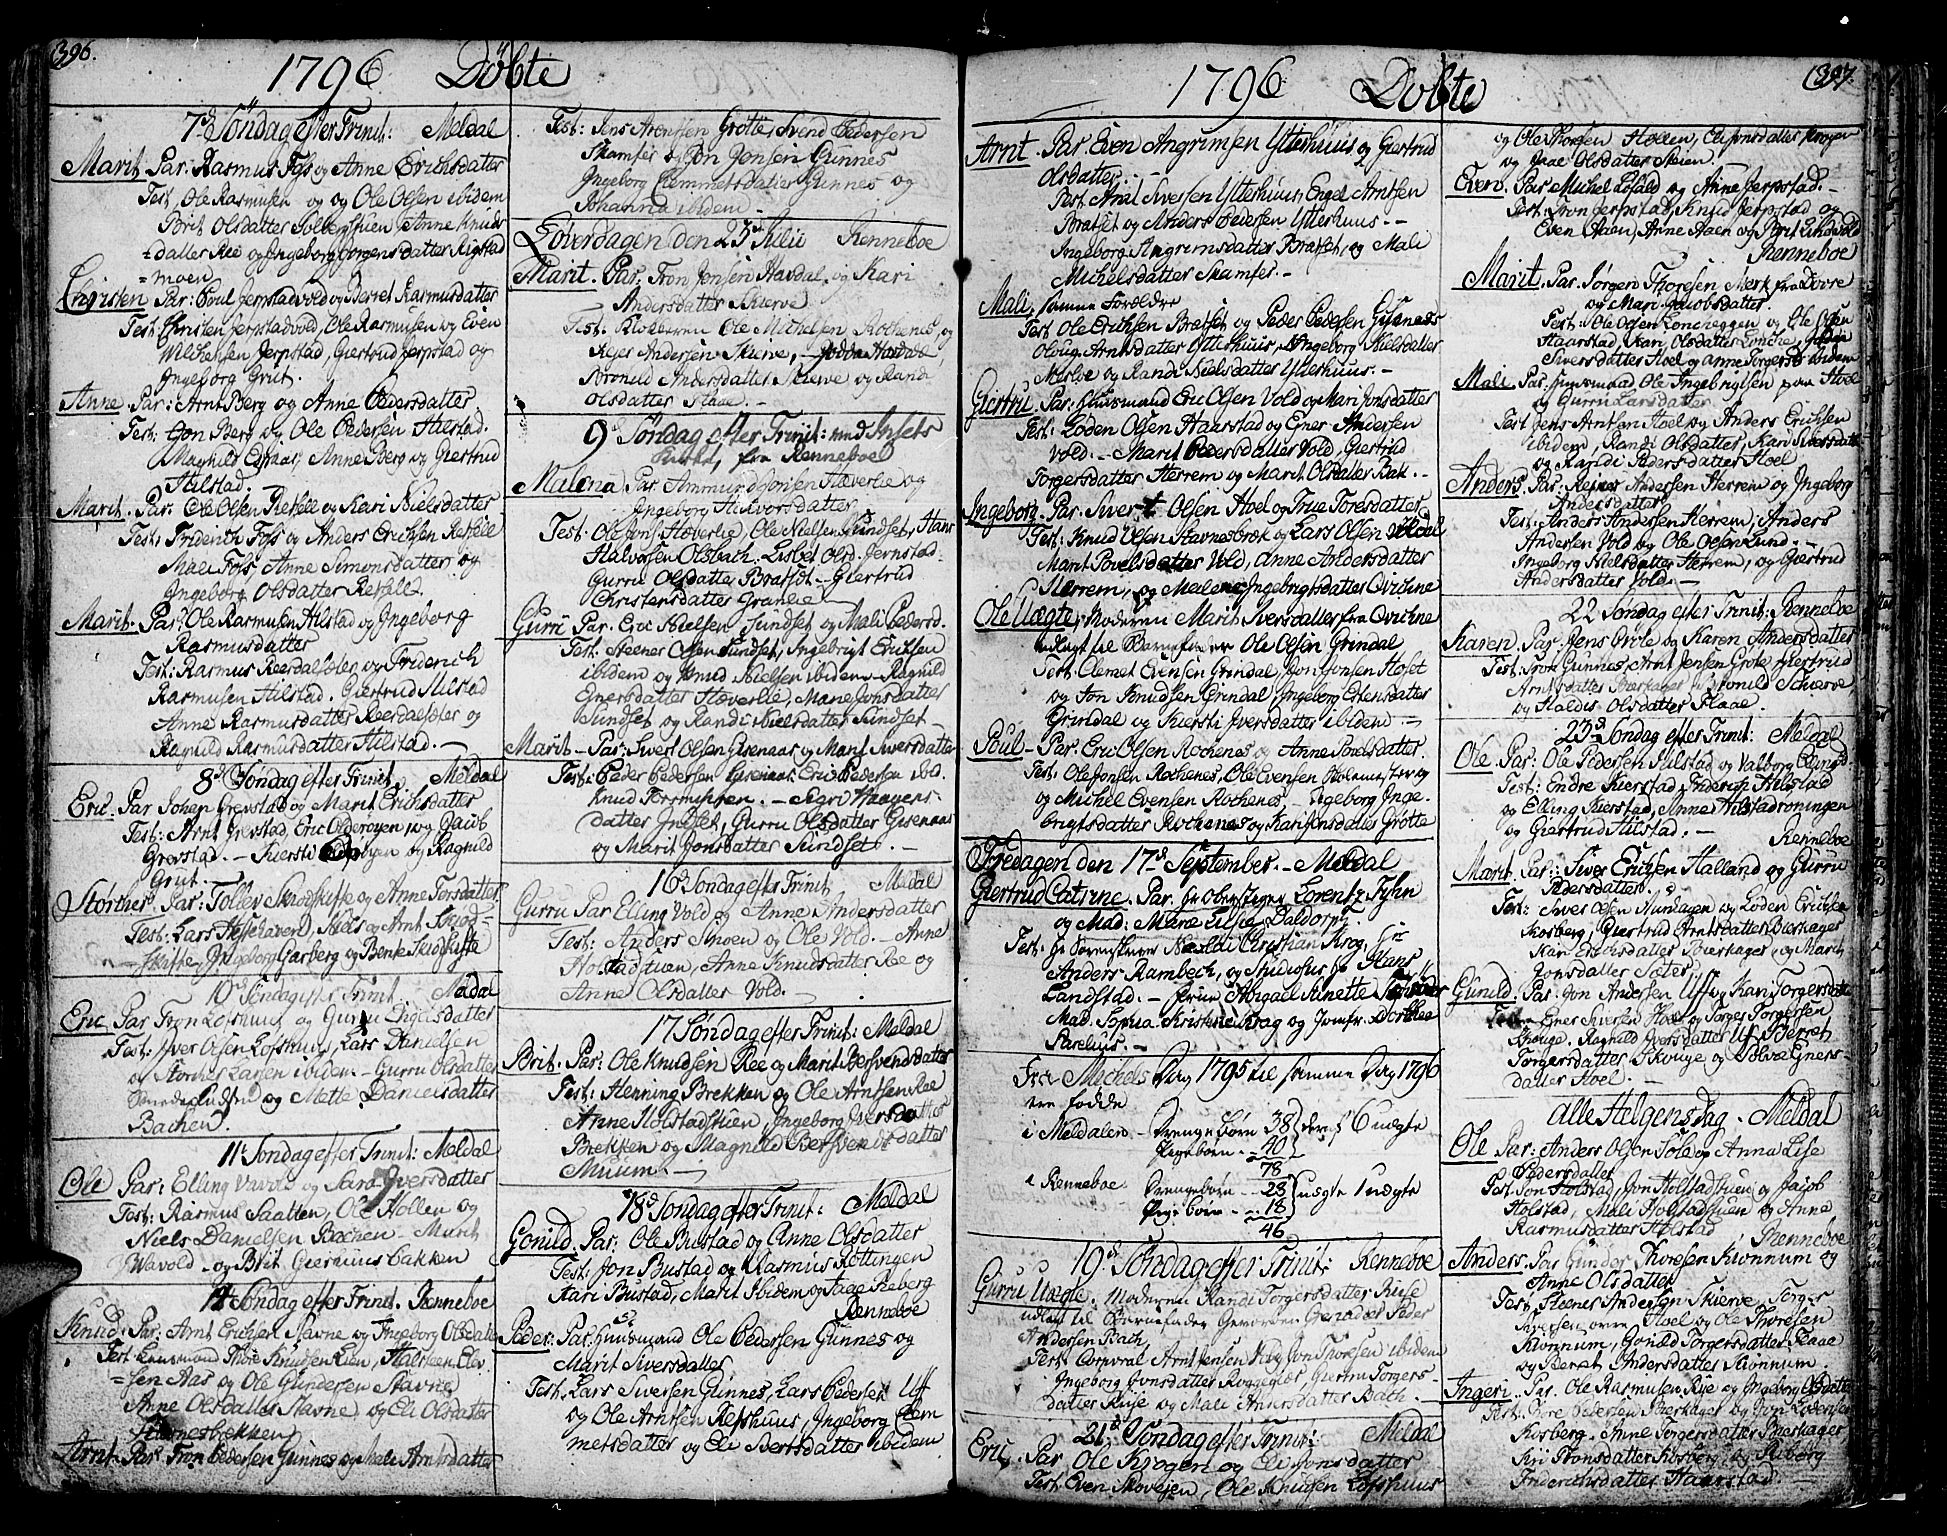 396.
1796 Döbte
7d Söndag efter Trinit: Meldal
Marit. Par: Rasmus Fos og Anne Erichsdatter
Test, Ole Rasmusen og og Ole Olsen ibidem
Brit Olsdatter Solbergshuen Anne Knuds
datter Ree og Ingeborg Jorgensdatter Rigstad
moen
Christen Par: Poul Jerpstadvold og Berret Rasmusdatter
Test: Christen Jerpstadvold, Ole Rasmusen og Even
Wilchensen Jerpstad, Giertrud Jerpstad og
Ingeborg Grut.
Anne. Par: Arnt Berg og Anne Pedersdatter
Test: Jon Berg og Ole Pedersen Hilstad.
Magnild, Anne Berg og Giertrud
Hilstad.
Marit. Par: Ole Olsen Resell og Kari Nielsdatter
Test: Friderich Fos og Anders Erichsen Resell
Mali Fos, Anne Simonsdatter og
Ingeborg Olsdatter Resell.
Marit. Par: Ole Rasmusen Hilstad og Ingeborg
Rasmusdatter
Test: Rasmus Reesdalseter og Friderich
Rasmusen Hilstad. Giertrud Hilstad
Anne Rasmusdatter Reesdalseter og
Ragnild Rasmusdatter Hilstad. —
8d Söndag efter Trinit Meldal
Eric. Par Johan Grevstad og Marit Erichsdatter
Test: Arnt Grevstad, Eric Olderøyen og Jacob
Grevstad. — Kiersti og Ragnild
Grut.
Storcher Par: Tollev Skiodskifte og Anne Torsdatter
Test: Lars Hesthaven, Niels og Arnt Skiod-
skifte, Ingeborg Garberg og Benke Skiodskifte
10d Söndag efter Trinit Meldal
Eric Par Tron Lofshuus og Gurru Engelsdatter
Test: Iver Olsen Lofshuus, Lars Danielsen
og Storcher Larsen ibidem — Gurru Olsdatter
og Mette Danielsdatter
Bachen.
11t Söndag efter Trinit: Meldal
Ole Par: Elling Vavold og Sara Iversdatter
Test: Rasmus Saatten, Ole Hollen og
Niels Danielsen Bachen — Marit
Wavold — og Brit Giersiuusbakken
14 Söndag efter Trinit. Renneboe
Knud: Par: Arnt Erichsen Stavne og Ingeborg Olsdatter
Test Lensmand Thore Knudsen Lien, Halsteen Elev
sen Aas og Ole Gundersen Stavne
Anne Olsdatter Stavne og Eli Olsdatter
Stavnesbrekken
Arnt. Par: Tron Pedersen Gunnes og Mali Arntsdatter
Test: Jens Arentsen Grotte Svend Pedersen
Skamfer og Jon Jonsen Gunnes
Ingeborg Clemmetsdatter Gunnes og
Johanna ibidem —
Löverdagen den 23d Julii Renneboe
Marit. Par: Tron Jonsen Havdal og Kari
Andersdatter Skierve
Test: Klokkeren Ole Michelsen Rothenes, og
Reier Andersen Skierve,
Andersdatter Skierve og Randi
Olsdatter Flaae. —
9d Söndag efter Trinit: ved Insets
Kirke, fra Renneboe
Malena Par Ammund Jonsen Hæverlie og
Ingeborg Halvorsdatter
Test: Ole Jons: Hæverlie, Ole Nielsen Sundset, Hans
Halvorsen Olsbach. Lisbet Olsd. Jernstad.
Gurru Olsdatter Bratset — Giertrud
Christensdatter Granlie —
Gurri Par. Eric Nielsen Sundset og Mali Peders d.
Test: Steener Olsen Sundset, Ingebrigt Erichsen
ibidem og Knud Nielsen ibidem Ragnild
Enersdatter Hæverlie, Mane Jonsdatter
Sundset og Randi Nielsdatter Sundset —
Marit — Par: Sivert Olsen Gisenaas og Marit Siversdatter
Test: Peder Pedersen Gisenaas Eric Pedersen ibd.
Knud — Sigri Haagens-
datter Indset, Gurru Olsdatter Gisenaas
og Marit Jonsdatter Sundset. —
16d Söndag efter Trinit Meldal
Gurru Par Elling Vold og Anne Andersdatter
Test: Anders Smoen og Ole Vold. Anne
Holstadstuen, Anne Knudsdatter Ree og
Anne Olsdatter Vold.
17 Söndag efter Trinit: Meldal
Brit. Par: Ole Knudsen Ree og Marit Bersvendsdatter
Test: Henning Brekken og Ole Arntsen Rae
Anne Holstadstuen, Ingeborg Iversdatter
Brekken og Magnild Bersvendsdatter
Muum. —
18d Söndag efter Trinit: Meldal
Gonild. Par: Ole Bustad og Anne Olsdatter
Test: Jon Bustad og Rasmus Rottingen
Kari Bustad, Marit ibidem og Aage Reberg
Renneboe
Peder: Par: Huusmand Ole Pedersen Gunnes og
Marit Siversdatter
Test: Lars Siversen Gunnes, Lars Pedersen Uff
og Ole Arntsen Refshuus, Ingeborg Clem
metsdatter og Eli Bertsdatter ibidem
397.
1796 Döbte
Arnt. Par Even Angrimsen Ytterhuus og Giertrud
Olsdatter. —
Test. Arnt Iversen Ytterhuus, Engel Arntsen
Bratset og Anders Pedersen Ytterhuus. —
Ingeborg Angrimsdatter Bratset, og Mali
Michelsdatter Skamfer. —
Mali, samme Forældre
Test. Ole Erichsen Bratset og Peder Pedersen Gisenaas
Oloug Arntsdatter Ytterhuus, Ingeborg Nielsdatter
Merlve og Randi Nielsdatter Ytterhuus. —
Giertru, Par: Huusmand Eric Olsen Vold og Mari Jonsdatter
Test: Loden Olsen Haarstad og Ener Andersen
Vold. — Marit Pedersdatter Vold, Giertrud
Torgersdatter Herrem og Marit Olsdatter Bak. —
Ingeborg. Par. Sivert Olsen Hoel og True Toresdatter
Test: Knud Olsen Stavnesbræk og Lars Olsen Hoel
Marit Povelsdatter Vold, Anne Andersdatter
Herrem, og Malene Ingebrigtsdatter Qvichne
Ole Uægte, Moderen Marit Siversdatter fra Qvichne
udlagt til Barnefader Ole Olsen Grindal
Test. Clemet Evensen Grindal, Jon Jonsen Hoset
og Jon Knudsen Grindal, Ingeborg Estensdatter
Grindal og Kiersti Iversdatter ibidem —
Poul — Par: Eric Olsen Rochenes og Anne Povelsdatter
Test: Ole Jonsen Rochenes, Ole Evensen Skolemester og
og Michel Evensen Rothenes — Ingeborg Inge-
brigtsdatter Rothenes og Kari Jonsdatter Grotte
Fredagen den 17d September. — Meldal
Giertrud Catrine. Par. Hr Oberstiger Lorentz Fyhn
og Mad: Maria Elisa Daldorph
Test: Hr Christian Krog, Hr
Anders Rambech, og Studiosus Hr Hans
Landstad. — Frue Abigael Anette
Mad. Sophia Kristine Krag og Jomfr. Dorthea
Parelius. —
Fra Michels Dag 1795 til samme Dag 1796
ere fødde
i Meldalen — Drenge børn 38 } deraf 6 uægte
Pigebørn .. 40
78
i Renneboe. Drengebørn .. 28 } uægte 1 uægte
Pigebørn .. 18
46
19d Söndag efter Trinit: Renneboe
Gurru Uægte. Moderen Randi Torgersdatter Riise
udlagt til Barnefader Gevorben Grenadeer Peder
Andersen Bach.
Test: Corporal Arnt Jensen Uf, Jon Thoresen ibidem
Ingeborg Jonsdatter Roggelos Gurru Torgers-
datter Riise og Mali Andersdatter Bach. —
21d Söndag efter Trinit: Meldal
Eric. Par Ole Krogen og Eli Jonsdatter
Test: Even Skovejen, Ole Knudsen Lofshuus
og Ole Thorsen Hollen, Eli Jonsdatter Krogen
og Aaae Olsdatter Skien!
Even. Par: Michel Lofald og Anne Jerpstad. —
Test. Tron Jerpstad, Knud Jerpstad og
Even Aaen, Anne Aaen og Brit Lindvold
Renneboe
Marit. Par: Jörgen Thoresen Merk fra Dovre
og Mari Jacobsdatter
Test: Ole Olsen Loncheggen og Ole
Haarstad, Kari Olsdatter Lonche,
Siversdatter Hoel og Anne Torgersd ibidem
Mali Par. Huusmand Ole Ingebrigtsen paa Hoel
og Gurru Larsdatter
Test Jens Arntsen Hoel og Anders Erichsen
ibidem, Randi Olsdatter, Kari Siversdatter
og Randi Pedersdatter Hoel
Anders Par. Reier Andersen Herrem og Ingeborg
Andersdatter
Test: Anders Andersen Herrem, Anders
Andersen Vold og Ole Olsen Lund. —
Ingeborg Nielsdatter Herrem, og Giertrud
Andersdatter Vold. —
22 Söndag efter Trinit: Renneboe
Karen. Par: Jens Grote og Karen Andersdatter
Test: Tron Gunnes, Arnt Jensen Grote, Giertrud
Arntsdatter Berskaget Schærve
og Haldis Olsdatter Flaae.
23d Söndag efter Trinit: Meldal
Ole Par: Ole Pedersen Hilstad og Valborg Ellingsd.
Test: Endre Kierstad, Friderich Hilstad
og Elling Kierstad, Anne Hilstadrøningen
og Giertrud Hilstad. —
Renneboe
Marit Par: Siver Erichsen Halland og Gurru
Pedersdatter.
Test: Siver Olsen Nurdagen og Loden Erichsen
Kosberg, Giertrud Arntsdatter Bierskaget
Kari Erichsdatter Bierskaget, og Marit
Jonsdatter Sæter.
Gunild Par: Jon Andersen Uf og Kari Torgersdatter
Test. Ener Siversen Hoel og Torger Torgersen
Skouge. Ragnild Iversdatter Uf, Berret
Torgersdatter Skouge og Solva Eners-
datter Hoel. —
Alle Helgensdag. Meldal
Ole Par: Anders Olsen Sole og Anna Lise
Pedersdatter
Test. Jon Holstad, Jon Holstadstuen og Jacob
Holstad, Mali Holstadstuen og Anne
Rasmusdatter Holstad
Renneboe
Anders. Par Gunder Thoresen Kionnum og
Anne Olsdatter
Test: Steener Andersen Skierve, Torger
Iversen Hoel og Ole Thoresen
Kionnum, Gonild Torgersdatter Flaae
og Beret Andersdatter Kionnum.
Ingeri. Par. Ole Rasmusen Rye og Ingeborg Olsdatter
Test: Tore Pedersen Bierskaget og Jon Lodensen
Kosberg. Anne Torgersdatter Bierskaget
Siri Tronsdatter Kosberg, og Ingeborg
Friderichsdatter Haarstad.